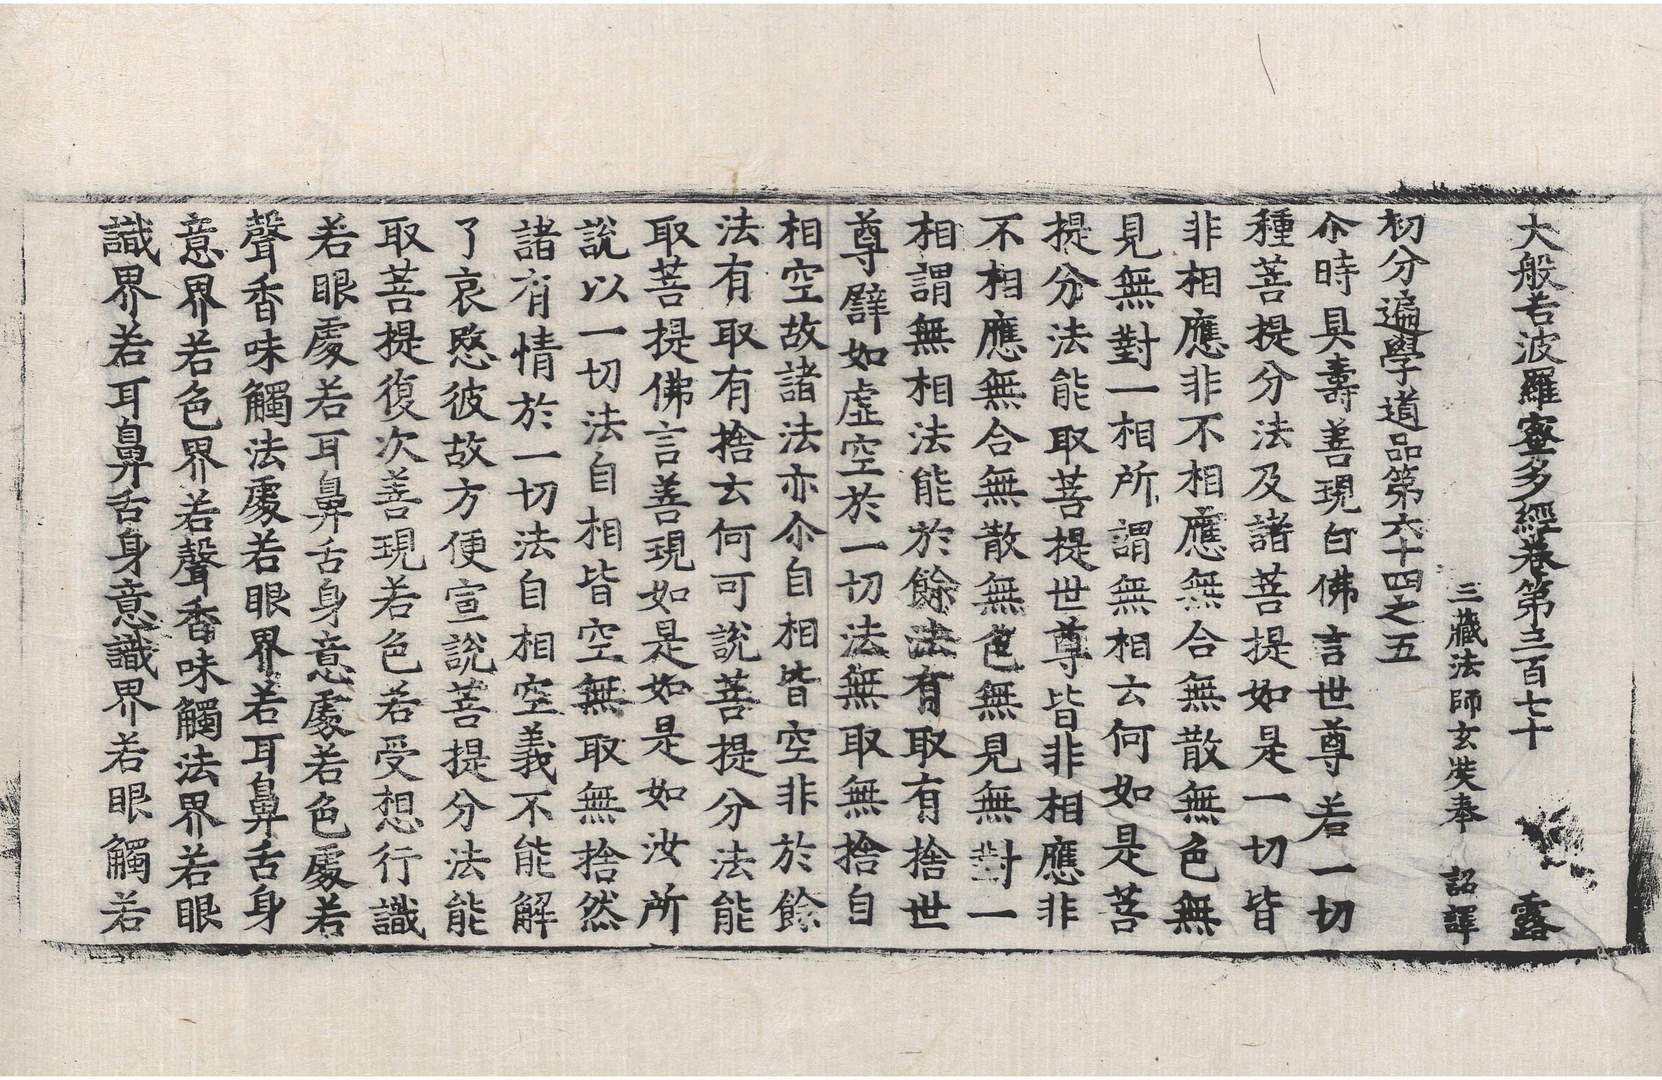 大般若波羅蜜多經卷第三百七十 露
三藏法師玄奘奉 詔譯
初分遍學道品第六十四之五
尒時具壽善現白佛言世尊若一切
種菩提分法及諸菩提如是一切皆
非相應非不相應無合無散無色無
見無對一相所謂無相云何如是菩
提分法能取菩提世尊皆非相應非
不相應無合無散無色無見無對一
相謂無相法能於餘法有取有捨世
尊譬如虛空於一切法無取無捨自
相空故諸法亦尒自相皆空非於餘
法有取有捨云何可說菩提分法能
取菩提佛言善現如是如是如汝所
說以一切法自相皆空無取無捨然
諸有情於一切法自相空義不能解
了哀愍彼故方便宣說菩提分法能
取菩提復次善現若色若受想行識
若眼處若耳鼻舌身意處若色處若
聲香味觸法處若眼界若耳鼻舌身
意界若色界若聲香味觸法界若眼
識界若耳鼻舌身意識界若眼觸若